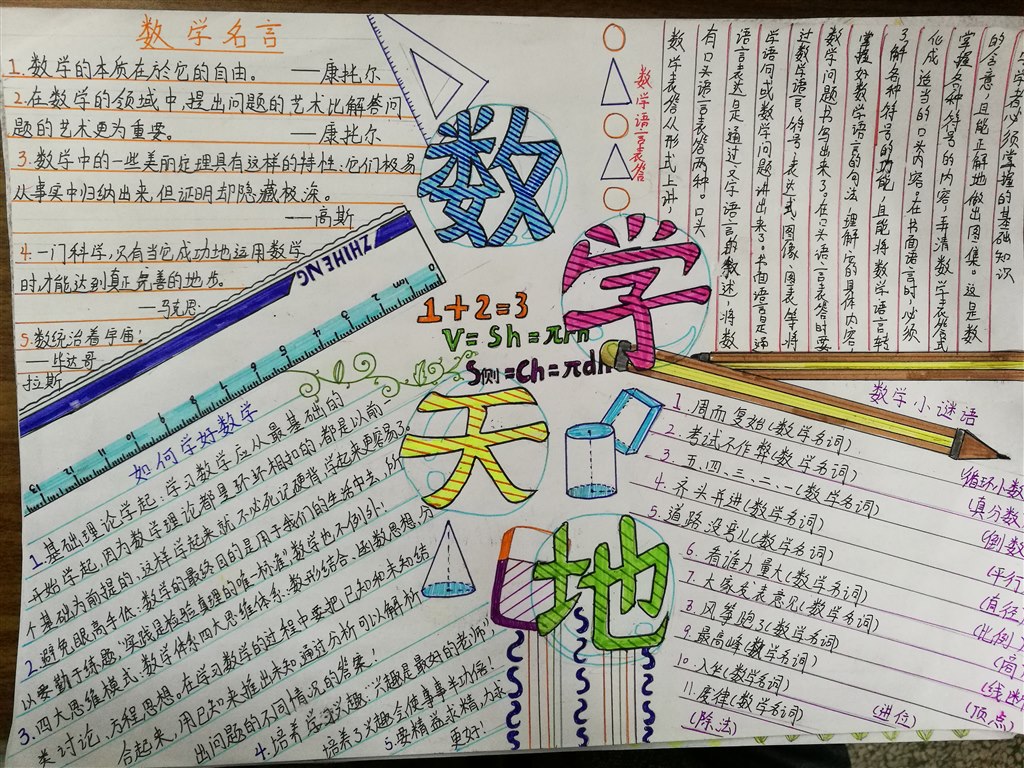 数学名言
1.数学的本质在於它的自由。 ——康托尔
2.在数学的领域中,提出问题的艺术比解答问
题的艺术更为重要。 ——康托尔
3.数学中的一些美丽定理具有这样的特性:它们极易
从事实中归纳出来,但证明却隐藏极深。
——高斯
4.一门科学,只有当它成功地运用数学
时,才能达到真正完善的地步。
——马克思
5.数统治着宇宙!
——毕达哥
拉斯
ZHIHENG
数
学
天
地
1+2=3
V=Sh=πrh
S侧=Ch=πdh
数学语言表答
学者必须掌握的基础知识
的含意,且能正解地做出图集。这是数
掌握各种符号的内容,弄清数学表答式
化成适当的口头内容。在书面语言时,必须
了解各种符号的功能,且能将数学语言转
掌握好数学语言的句法,理解它的具体内容,
数学问题书写出来了。在口头语言表答时要
过数学语言、符号、表头式、图像、图表、等将
学语句或数学问题讲出来了。书面语言是通
语言表达是通过文字语言的教述,将数
有口头语言表答两种。口头
数学表答从形式上讲,
如何学好数学
1.基础理论学起:学习数学应从最基础的
开始学起,因为数学理论都是环环相扣的都是以前
个基础为前提的,这样学起来就不必死记硬背学起来更容易了。
2.避免眼高手低:数学的最终目的是用于我们的生活中去,所
以要勤于练题,“实践是检验真理的唯一标准”数学也不例外!
3.四大思维模式:数学体系四大思维体系:数形结合、函数思想、分
类讨论、方程思想。在学习数学的过程中要把已知和未知结
合起来,用“已知”来推出未知通过分析可以解析
出问题的不同情况的答案!
4.培养学习兴趣:“兴趣是最好的老师”,
培养了兴趣会使事事半功倍!
5.要精益求精,力求
更好!
数学小谜语
1.周而复始(数学名词)
(循环小数
2.考试不作弊(数学名词)
(真分数
3.五、四、三、二、一(数学名词)
(倒数
4.齐头并进(数学名词)
(平行
5.道路没弯儿(数学名词)
(直径
6.看谁力量大(数学名词)
(比例
7.大家发表意见(数学名词)
8.风筝跑了(数学名词)
9.最高峰(数学名词)
(顶点)
10.入坐(数学名词)
(进位)
11.废律(数学名词)
(除法)